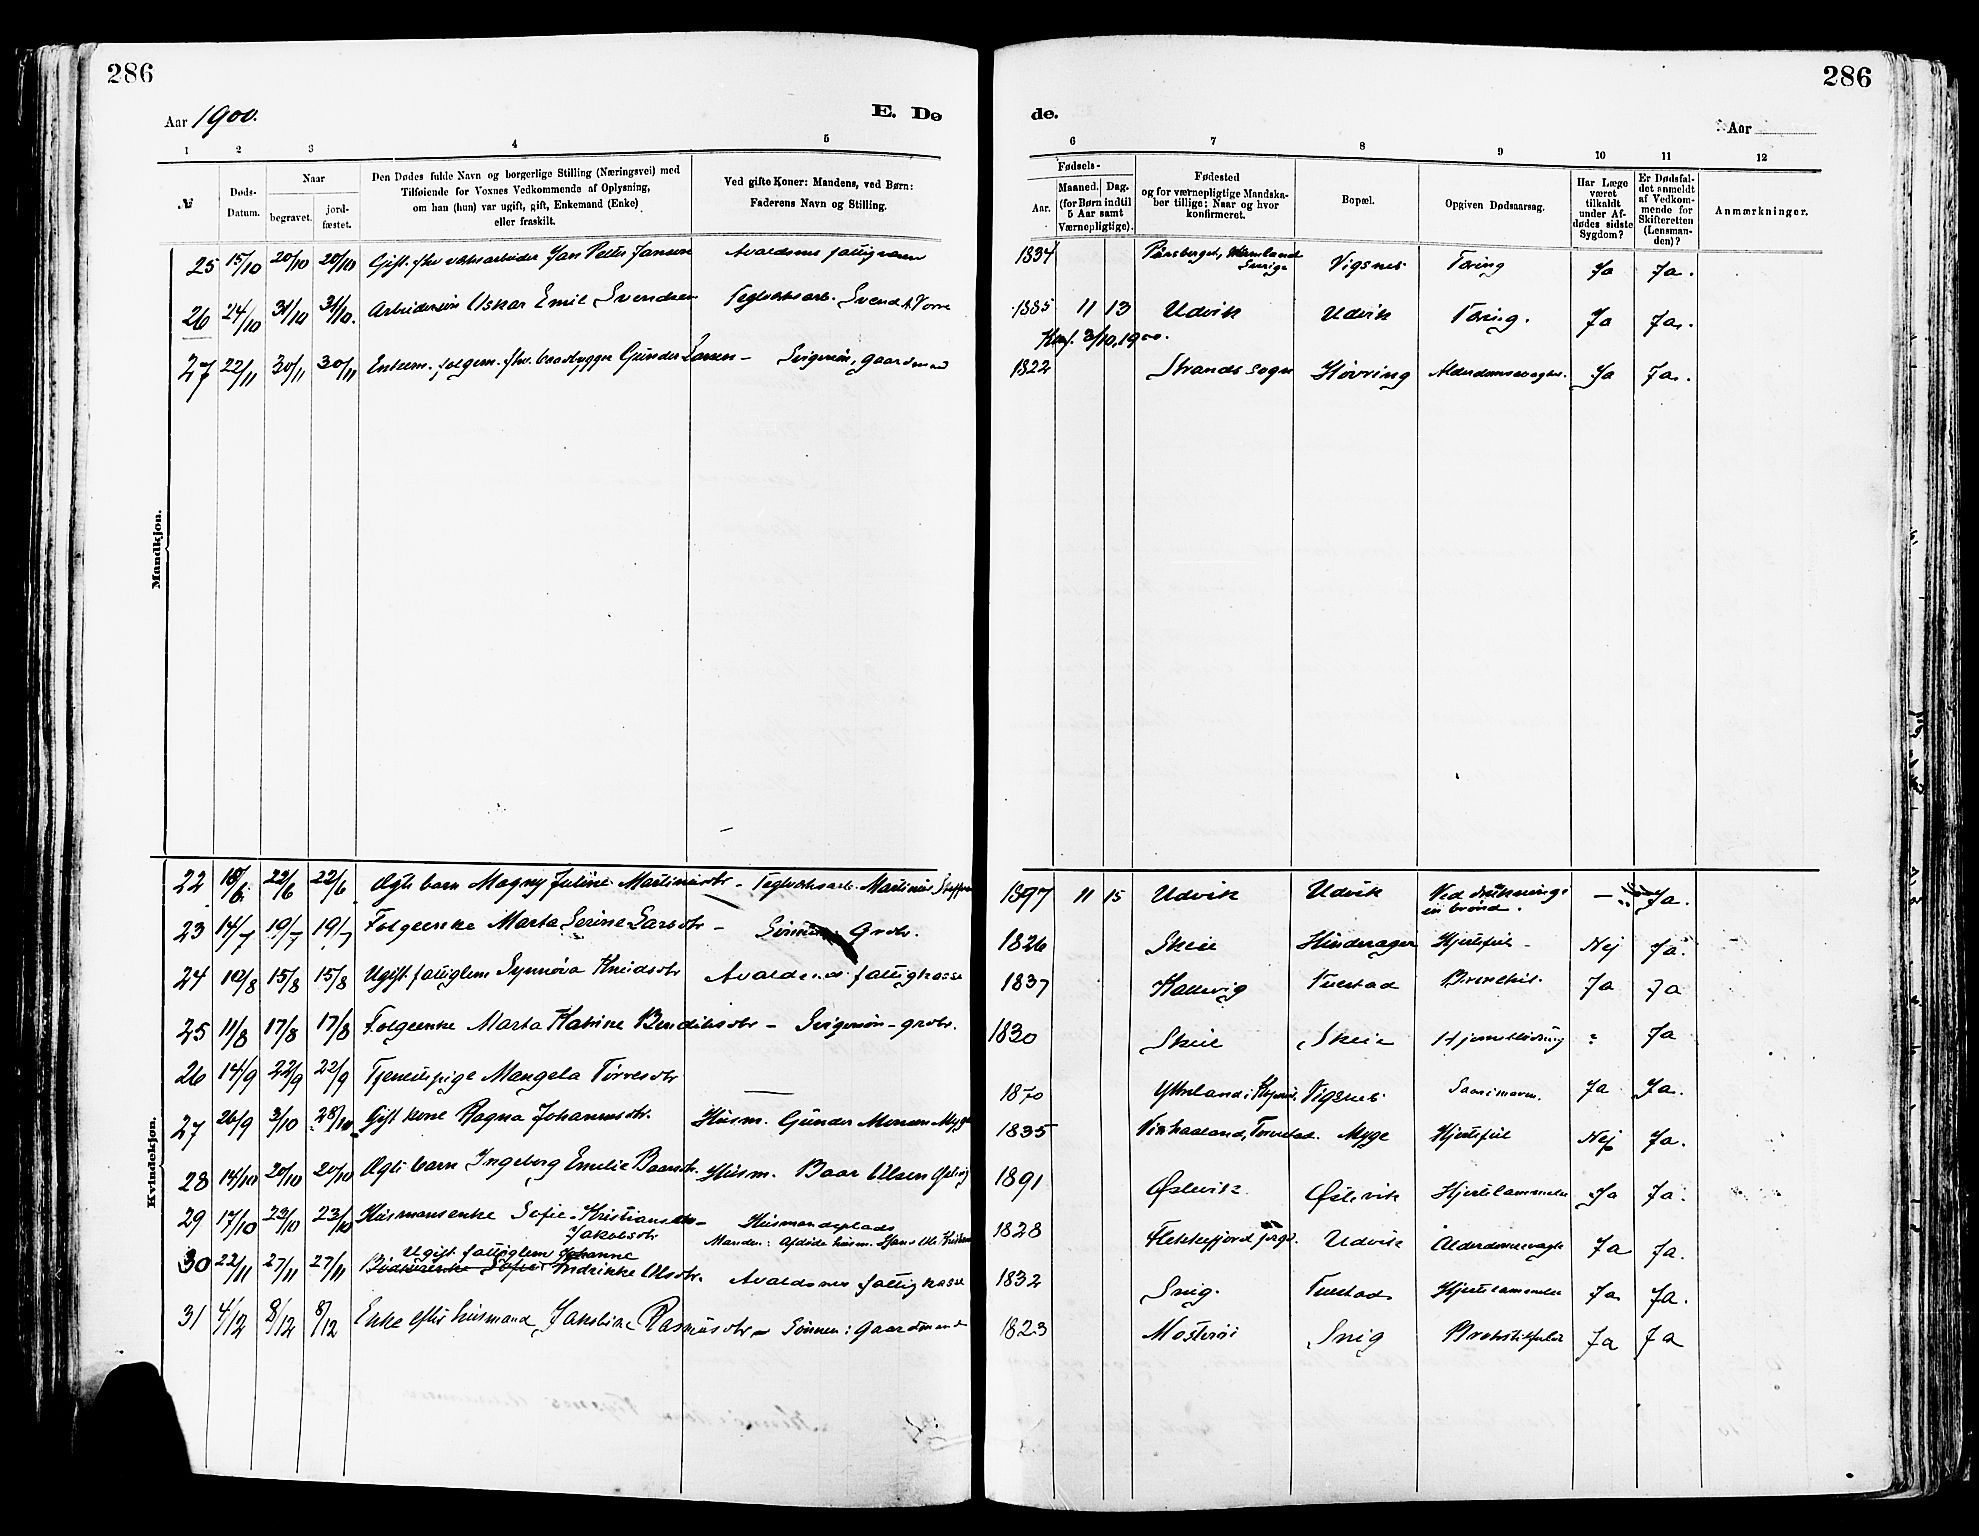 286
286
Aar 1900.
E. Dø
de.
Aar
1 2 3 4 5 6 7 8 9 10 11 12
№
Døds-Datum.
Naar
begravet.
jord-fæstet.
Den Dødes fulde Navn og borgerlige Stilling (Næringsvei) med
Tilføiende for Voxnes Vedkommende af Oplysning,
om han (hun) var ugift, gift, Enkemand (Enke)
eller fraskilt.
Ved gifte Koner: Mandens, ved Børn:
Faderens Navn og Stilling.
Fødsels-
Aar.
Maaned. Dag.
(for Børn indtil
5 Aar samt
Værnepligtige).
Fødested
og for værnepligtige Mandska-
ber tillige: Naar og hvor
konfirmeret.
Bopæl.
Opgiven Dødsaarsag.
Har Læge
været
tilkaldt
under Af-
dødes sidste
Sygdom?
Er Dødsfal-
det anmeldt
af Vedkom-
mende for
Skifteretten
(Lensman-
den)?
Anmærkninger.
Mandkjøn.
25 15/10 20/10 20/10 Gift. fhv. Jan Petter Jansen Avaldsnes fattigvæsen 1834 Sverige Vigsnes Tæring Ja Ja.
26 24/10 31/10 31/10. Arbeidersøn Oskar Emil Svendsen Teglverksarb. Svend 1885 11 13 Udvik Udvik Tæring. Ja Ja.
Konf. 3/10, 1900.
27 22/11 30/11 30/11 Enkem. folgem. fhv. baadbygger Gunder Larsen – Svigersøn, gaardmand 1822 Strands sogn Høvring Alderdomssvaghed. Ja Ja.
Kvindekjøn.
22 18/6 22/6 22/6 Ægte barn Magny Juline Martinusdtr – Teglverksarb. Martinus 1897 11 15 Udvik Udvik Ved drukning i – Ja.
en brønd.
23 14/7 19/7 19/7 Folgeenke Marta Serine Larsdtr – Sønnen Grdbr. 1826 Skeie Hinderager Hjertefeil – Nej Ja.
24 10/8 15/8 15/8 Ugift fattiglem Synnøva Knudsdtr Avaldsnes fattigkasse 1837 Kallevig Tuestad Ja Ja
25 11/8 17/8 17/8 Folgeenke Marta Katrine Bendiksdtr – Svigersøn – grdbr. 1830 Skeie Skeie Ja
26 14/9 22/9 22/9 Tjenestepige Mangela Tørresdtr — 1870 Vigsnes Ja Ja.
27 26/9 3/10 28/10 Gift kone Ragna Johannesdtr. Husm. Gunder Monsen Myge 1835 Myge Hjertefeil Nej Ja.
28 14/10 20/10 20/10 Ægte barn Ingeborg Emelie Baarsdtr. Husm. Baar Olsen 1891 Østevik Østevik Hjertelammelse Ja Ja.
29 17/10 23/10 23/10 Husmansenke Sofie Kristiane Husmandsplads 1828 Flekkefjord Udvik Alderdomssvaghed Ja Ja.
Jakobsdtr Manden: Afdøde husm.
30 22/11 27/11 27/11 Ugift fattiglem Johanne Indrikke Olsdtr. Avaldsnes fattigkasse 1832 Snig. Tuestad Hjertelammelse Ja Ja.
31 4/12 8/12 8/12 Enke efter husmand, Jakobine Rasmusdtr – Sønnen: Gaardmand 1823 Mosterøi Snig Ja Ja